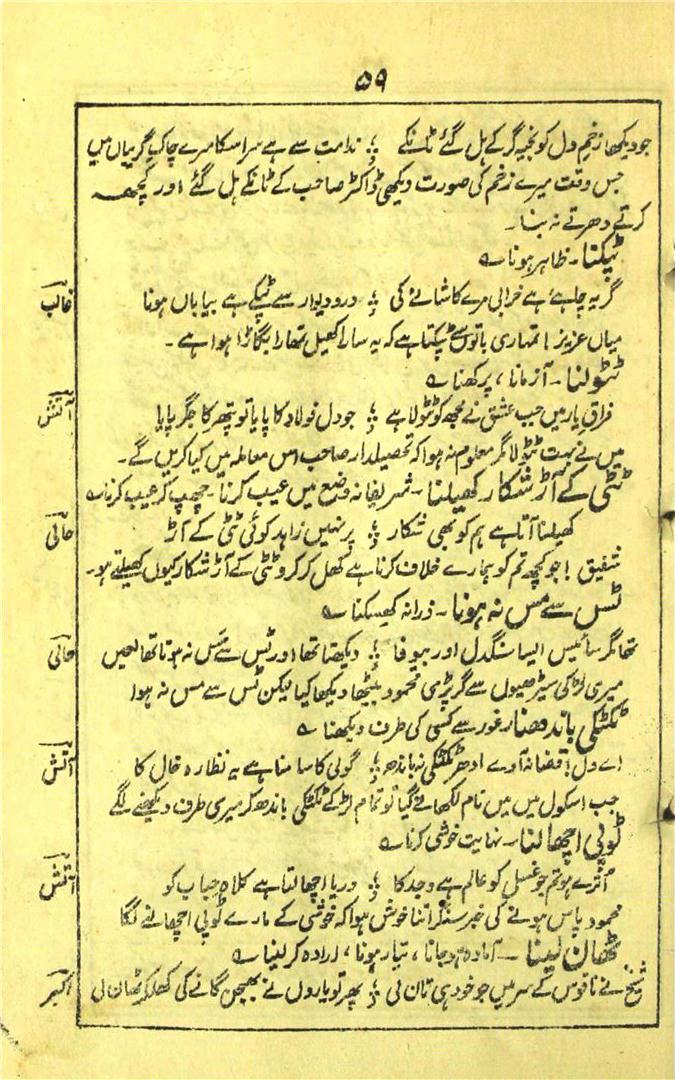 ۵۹
جو دیکھا زخمِ دل کو بخیہ گر کے ہل گئے ٹانکے ؛ ندامت سے ہے سر اسکا مرے چاکِ گریباں میں
جس وقت میرے زخم کی صورت دیکھی ڈاکٹر صاحب کے ٹانکے ہل گئے اور کچھ
کرتے دھرتے نہ بنا۔
ٹپکنا۔ ظاہر ہونا ؎
گریہ چاہے ہے خرابی مرے کاشانے کی ؛ در و دیوار سے ٹپکے ہے بیاباں ہونا غالب
میاں عزیز! تمہاری باتوں سے ٹپکتا ہے کہ یہ سارا کھیل تمھارا بگاڑا ہوا ہے۔
ٹٹولنا۔ آزمانا، پرکھنا ؎
فراقِ یار میں جب عشق نے مجھ کو ٹٹولا ہے ؛ جو دل فولاد کا پایا تو پتھر کا جگر پایا آتش
میں نے بہت ٹٹولا مگر معلوم نہ ہوا کہ تحصیلدار صاحب اس معاملہ میں کیا کریں گے۔
ٹٹی کے آڑ شکار کھیلنا۔ شریفانہ وضع میں عیب کرنا۔ چھپ کر عیب کرنا ؎
کھیلنا آتا ہے ہم کو بھی شکار ؛ پر نہیں زاہد کوئی ٹٹی کے آڑ حالی
شفیق! جو کچھ تم کو ہمارے خلاف کرنا ہے کھل کر کرو ٹٹی کے آڑ شکار کیوں کھیلتے ہو۔
ٹس سے مس نہ ہونا۔ ذرا نہ کھسکنا ؎
تھا مگر سائیس ایسا سنگدل اور بیوفا ؛ دیکھتا تھا اور ٹس سے مس نہ ہوتا تھا لعیں حالی
میری لڑکی سیڑھیوں سے گر پڑی محمود بیٹھا دیکھا کیا لیکن ٹس سے مس نہ ہوا
ٹکٹکی باندھنا۔ غور سے کسی کی طرف دیکھنا ؎
اے دل! قضا نہ آوے ادھر ٹکٹکی نہ باندھ ؛ گولی کا سامنا ہے یہ نظارہ خال کا آتش
جب اسکول میں میں نام لکھانے گیا تو تمام لڑکے ٹکٹکی باندھ کر میری طرف دیکھنے لگے
ٹوپی اچھالنا۔ نہایت خوشی کرنا ؎
اترے ہو تم جو غسل کو عالم ہے وجد کا ؛ دریا اچھالتا ہے کلاہِ حباب کو آتش
محمود پاس ہونے کی خبر سنکر اتنا خوش ہوا کہ خوشی کے مارے ٹوپی اچھالنے لگا
ٹھان لینا۔ آمادہ ہوجانا، تیار ہونا، ارادہ کرلینا ؎
شیخ نے ناقوس کے سر میں جو خود ہی تان لی ؛ پھر تو یاروں نے بھجن گانے کی کھل کر ٹھان لی اکبر